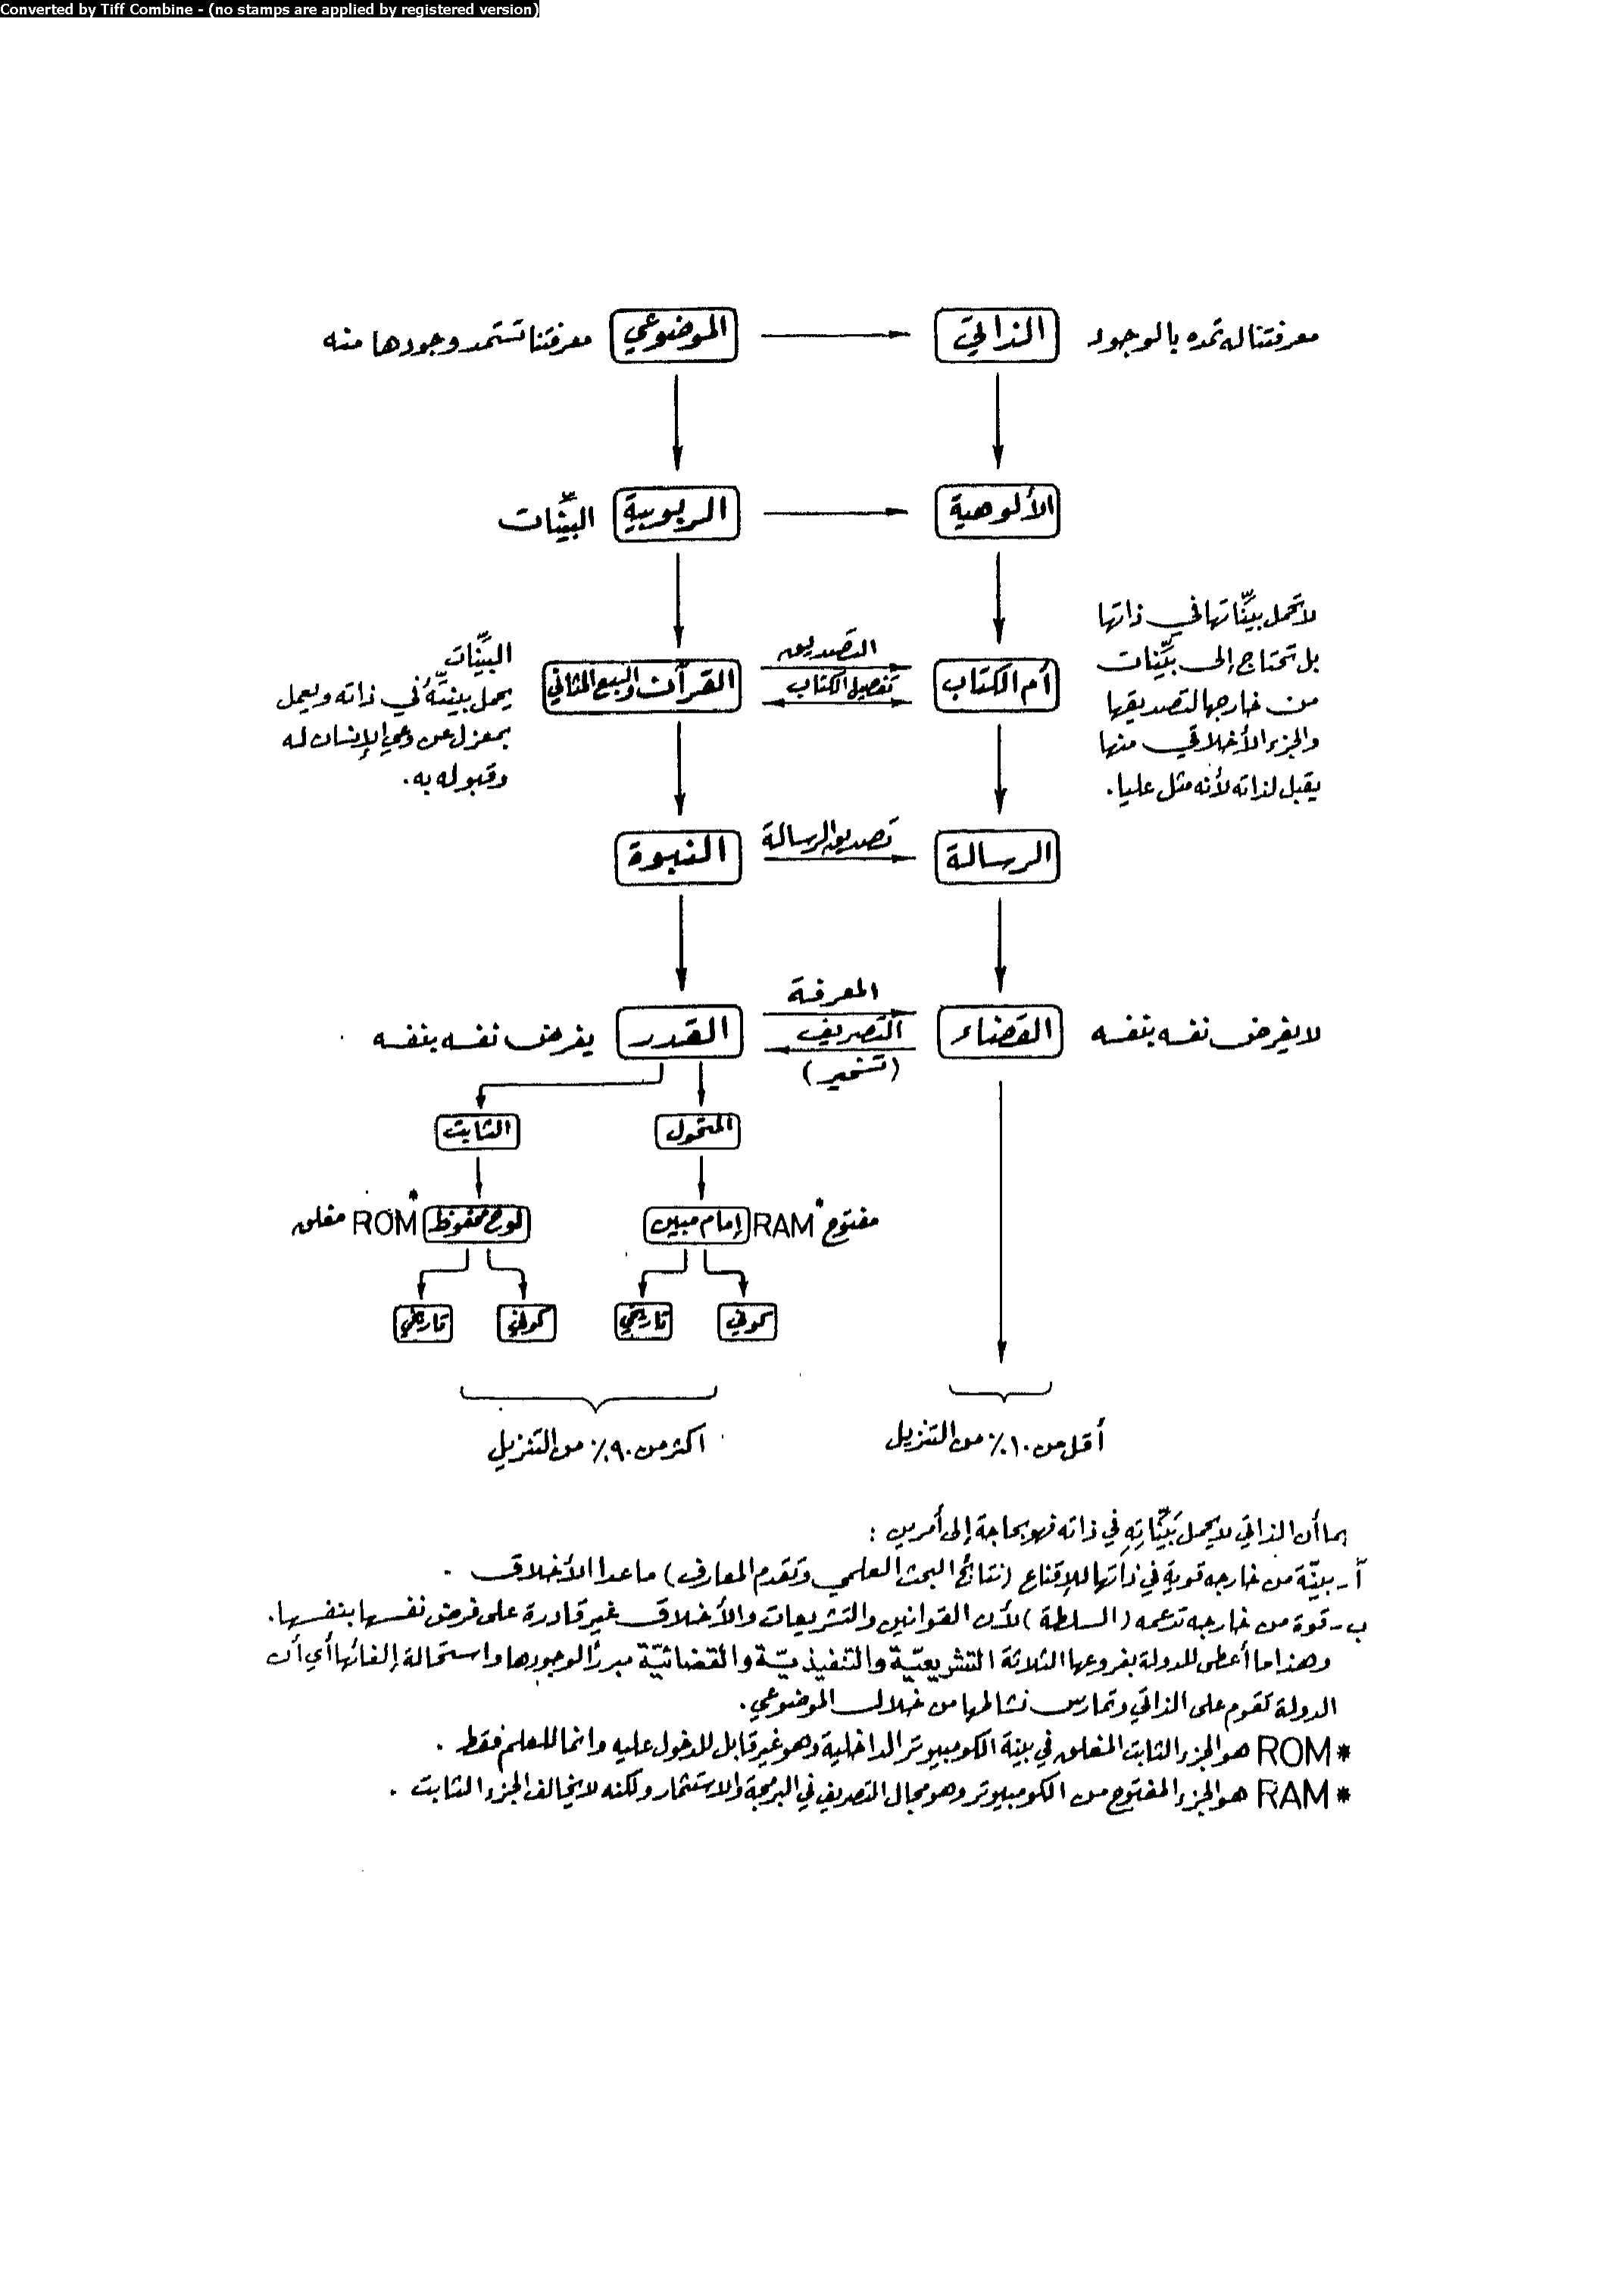 Converted by Tiff Combine - (no stamps are applied by registered version)
معرفتنا له تمده بالوجود
الذاتي
الموضوعي
معرفتنا تستمد وجودها منه
الألوهية
الربوبية
البيِّنات
لا تحمل بيِّناتها في ذاتها
بل تحتاج إلى بيِّنات
من خارجها لتصديقها
والجزء الأخلاقي منها
يقبل لذاته لأنه مثل عليا.
أم الكتاب
التصديق
تفصيل الكتاب
القرآن والسبع المثاني
البيِّنات
يحمل بينتَّهُ في ذاته ويعمل
بمعزل عن وعي الإنسان له
وقبوله به.
الرسالة
تصديق الرسالة
النبوة
لا يفرض نفسه بنفسه
القضاء
المعرفة
التصريف
(تسخير)
القدر
يفرض نفسه بنفسه
المتحول
الثابت
مفتوح *RAM
إمام مبين
لوح محفوظ
*ROM مغلق
كوني
تاريخي
كوني
تاريخي
أقل من ١٠٪ من التنزيل
اكثر من ٩٠٪ من التنزيل
بما أن الذاتي لا يحمل بَيِّناتِهِ في ذاته فهو بحاجة إلى أمرين :
أ - بينّة من خارجه قوية في ذاتها للإقناع (نتائج البحث العلمي وتقدم المعارف) ما عدا الأخلاق .
ب - قوة من خارجه تدعمه (السلطة) لأن القوانين والتشريعات والأخلاق غير قادرة على فرض نفسها بنفسها.
وهذا ما أعطى للدولة بفروعها الثلاثة التشريعيّة والتنفيذيّة والقضائيّة مبررًا لوجودها واستحالة إلغائها أي أن
الدولة تقوم على الذاتي وتمارس نشاطها من خلال الموضوعي.
* ROM هو الجزء الثابت المغلق في بنية الكومبيوتر الداخلية وهو غير قابل للدخول عليه وانما للعلم فقط .
* RAM هو الجزء المفتوح من الكومبيوتر وهو مجال التصريف في البرمجة والاستثمار ولكنه لا يخالف الجزء الثابت .